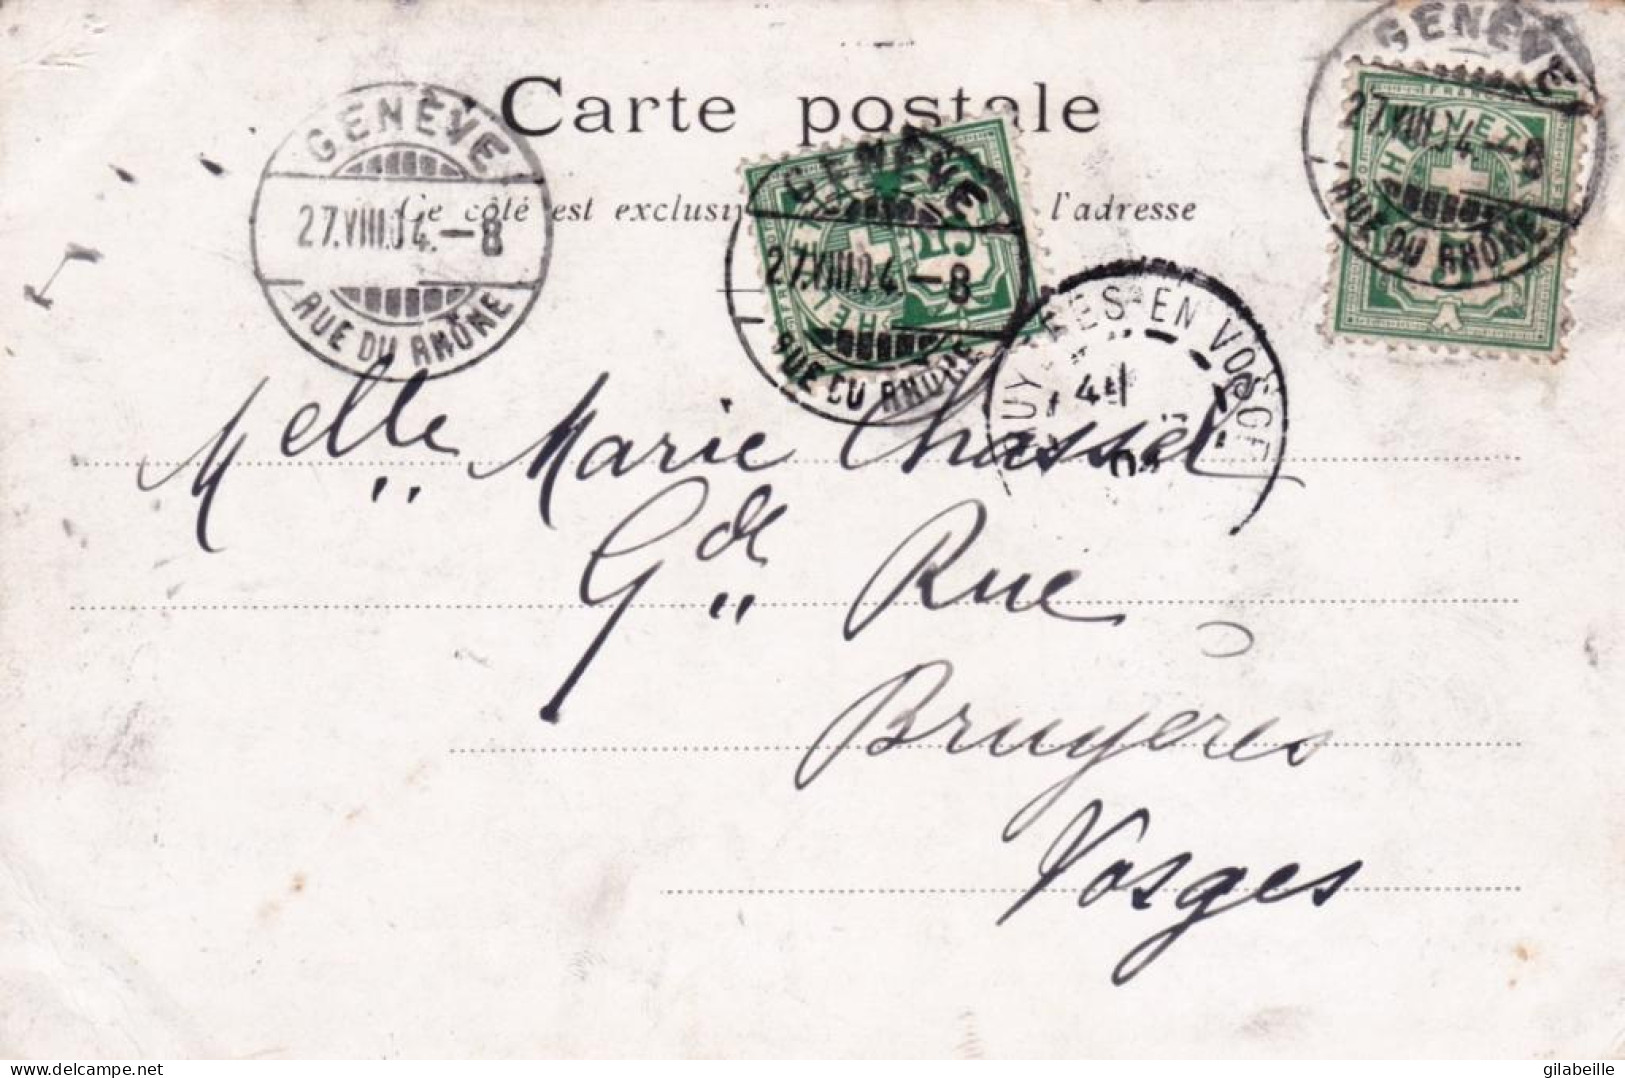 Carte postale
Ce côté est exclusi l'adresse
GENÈVE
27.VIII.04.–8
RUE DU RHÔNE
GENÈVE
27.VIII.04.–8
RUE DU RHÔNE
GENÈVE
27.VIII.04.–8
RUE DU RHÔNE
FRANCO
HELVETIA
5
RES-EN VOSGE
04
Melle Marie Chassel
Gde Rue
Bruyères
Vosges
delcampe.net
gilabeille